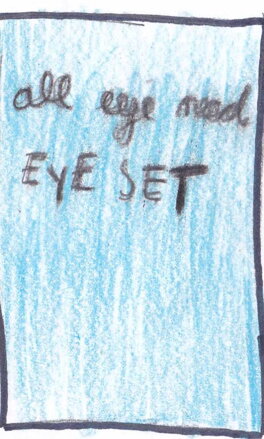 all eye need
EYE SET